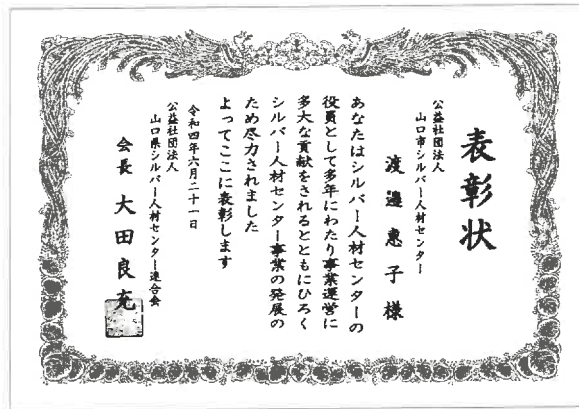 表彰状
公益社団法人
山口市シルバー人材センター
渡邉惠子様
あなたはシルバー人材センターの
役員として多年にわたり事業運営に
多大な貢献をされるとともにひろく
シルバー人材センター事業の発展の
ため尽力されました
よってここに表彰します
令和四年六月二十一日
公益社団法人
山口県シルバー人材センター連合会
会長 大田良充